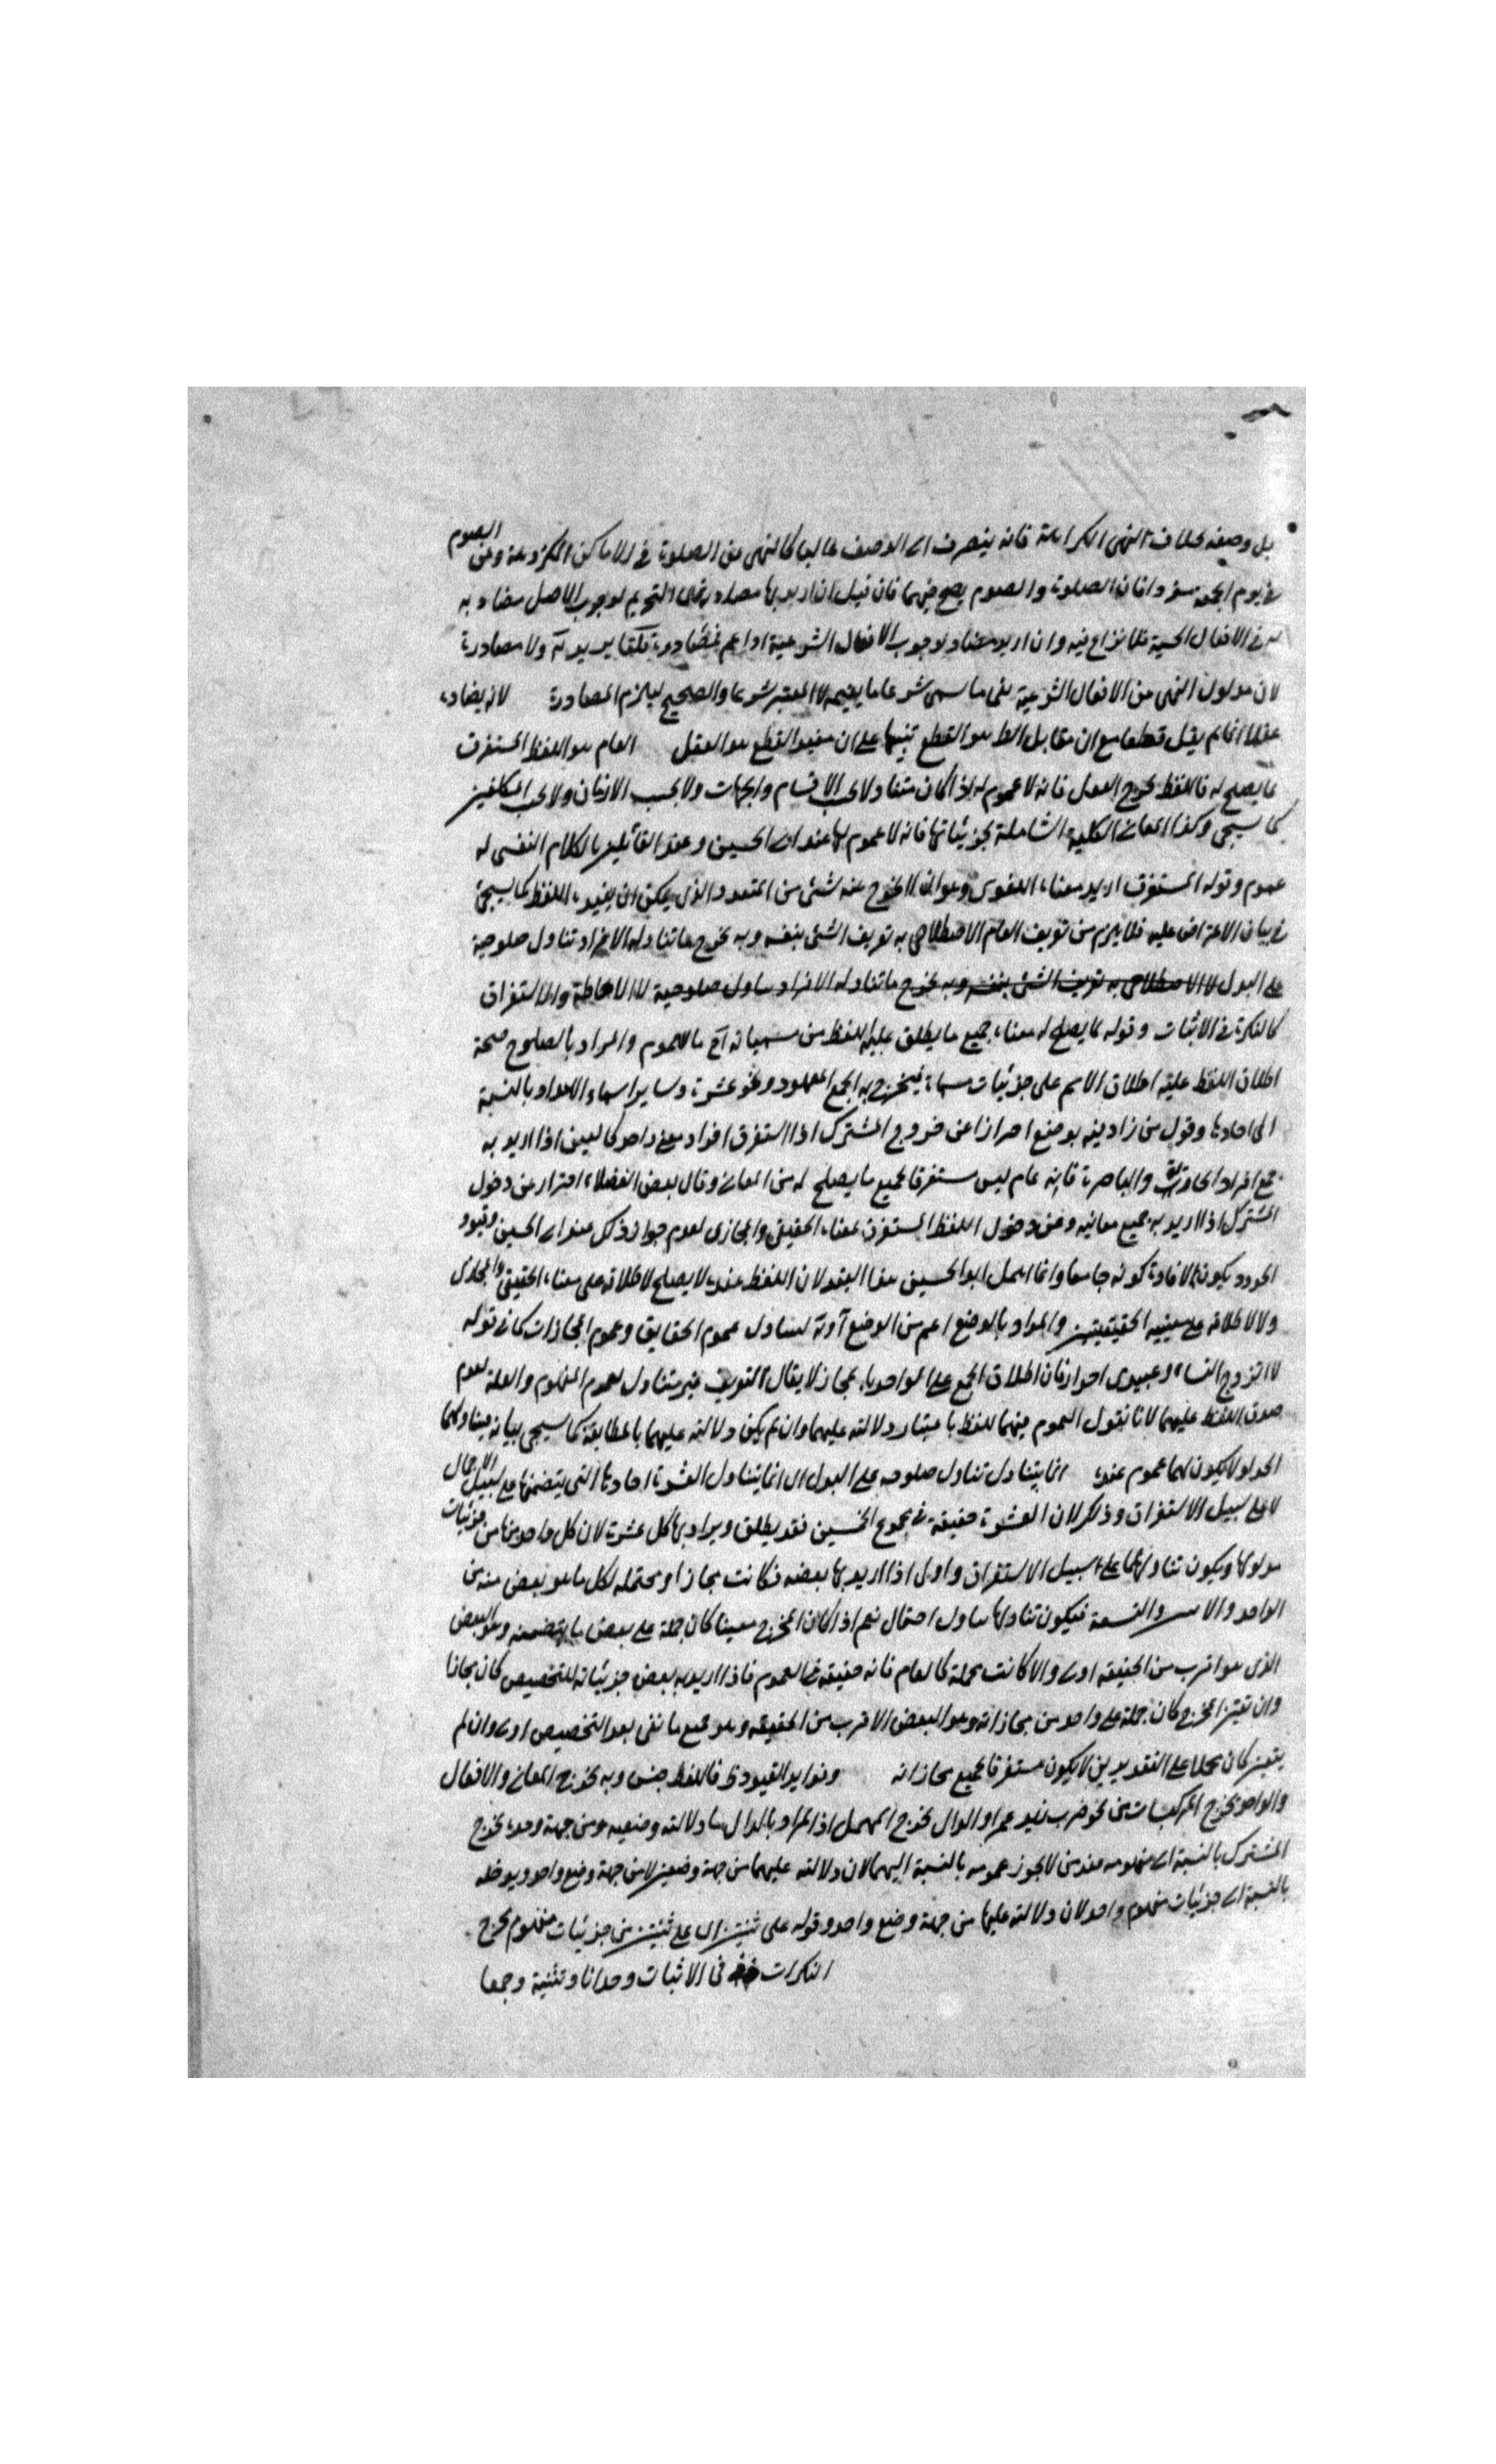 بل وصفه بخلاف النهى الكراهة فانه ينصرف الى الوصف غالبا كالنهى عن الصلوة فى الاماكن المكروهة وعن الصوم
فى يوم الجمعة مفردا فان الصلوة والصوم يصح فيهما فان قيل ان اريد بها مصادرة نهى التحريم لوجوب الاصل مضاد به
له فى الافعال الحسية فلا نزاع فيه وان اريد مضاد لوجوب الافعال الشرعية او اعم ولا مصادرة
لان مدلول النهى عن الافعال الشرعية نفى ما سمى شرعا ما يفهمه لا المعتبر شرعا والصحيح ليلزم المصادرة لانه يضاده
عقلا انما لم يقل قطعا مع ان مقابل الظ هو القطع تنبيها على ان مفيد القطع هو العقل العام هو اللفظ المستغرق
لما يصلح له فاللفظ يخرج الفعل فانه لا عموم له اذا كان متناولا بحسب الاقسام والجهات ولا بحسب الازمان ولا بحسب المكلفين
كما سيجى وكذا المعانى الكلية الشاملة لجزئياتها فانه لا عموم لها عند ابى الحسين وعند القائلين بالكلام النفسى له
عموم وقوله المستغرق اريد معناه اللغوى وهو ان لا يخرج عنه شئ من المتعدد الذى يمكن ان يفيده اللفظ كما سيجئ
فى بيان الاعتراض عليه فلا يلزم من تعريف العام الاصطلاحى به تعريف الشئ بنفسه وبه يخرج ما تناوله الافراد تناول صلوحية
على البدل لا الاصطلاحى به تعريف الشئ بنفسه وبه يخرج ما تناوله الافراد تناول صلوحية لا الاحاطة والاستغراق
كالنكرة فى الاثبات وقوله لما يصلح له معناه جميع ما يطلق عليه اللفظ من مسمياته والمراد بالصلوح صحة
اطلاق اللفظ عليه اطلاق الاسم على جزئيات مسماه فيخرج به الجمع المعهود ونحو عشرة وساير اسماء الاعداد بالنسبة
الى احادها وقول من زاد فيه بوضع احترازا عن خروج المشترك اذا استغرق افراد معنى واحد كالعين اذا اريد به
جمع افراد الجارية والباصرة فانه عام ليس مستغرقا لجميع ما يصلح له من المعانى وقال بعض الفضلاء احتراز عن دخول
المشترك اذا اريد به جميع معانيه وعن دخول اللفظ المستغرق لمعناه الحقيقى والمجازى لعدم جواز ذلك عند ابى الحسين وقيود
الحدود يكون لافادة كونه جامعا وانما اهمل ابو الحسين هذا القيد لان اللفظ عنده لا يصلح لاطلاقه على معناه الحقيقى والمجازى
ولا لاطلاقه على معنييه الحقيقيين والمراد بالوضع اعم من الوضع ليتناول عموم الحقايق وعموم المجازات كما فى قوله
لا اتزوج النساء وعبيدى احرار فان اطلاق الجمع على الواحد مجاز لا يقال التعريف غير متناول لعموم المفهوم والعلة لعدم
صدق اللفظ عليهما لانا نقول العموم فيهما للفظ باعتبار دلالته عليهما وان لم يكن دلالته عليهما بالمطابقة كما سيجى بيانه فيتناولهما
الحد او لا يكون لهما عموم عنده انما يتناول تناول صلوحه على البدل اى انما يتناول العشرة احادها التى يتضمنها على سبيل الاجمال
لا على سبيل الاستغراق وذلك لان العشرة حقيقة فى مجموع الخمسين فقد يطلق ويراد بها كل عشرة لان كل واحد منها من جزئيات
مدلولها ويكون تناولها على سبيل الاستغراق واول اذا اريد بها بعضه فكانت مجازا ومحتمله لكل ما هو بعض منه من
الواحد والاثنين والتسعة فيكون تناولها تناول احتمال نعم اذا كان المخرج معينا كان حمله على بعض ما يتضمنه وهو البعض
الذى هو اقرب من الحقيقة اولى والا كانت مجملة كالعام فانه حقيقة فى العموم فاذا اريد به بعض جزئياته للتخصيص كان مجازا
وان تعين المخرج كان حمله على واحد من مجازاته وهو البعض الاقرب من الحقيقة وهو جميع ما بقى بعد التخصيص اولى وان لم
يتعين كان مجملا على التقديرين لا يكون مستغرقا لجميع مجازاته وفوايد القيود فاللفظ جنس وبه يخرج المعانى والافعال
والواحد يخرج المركبات من نحو ضرب زيد عمرا والدال يخرج المهمل اذ المراد بالدال ما دلالته وضعيه ومن جهة وحده يخرج
المشترك بالنسبة الى مفهوميه لا يجوز عمومه بالنسبة اليهما لان دلالته عليهما من جهة وضعين لا من جهة وضع واحد ويدخله
بالنسبة الى جزئيات مفهوم واحد لان دلالته عليها من جهة وضع واحد وقوله على شيئين اى على شيئين من جزئيات مفهوم يخرج
النكرات فى الاثبات وحدانا وتثنية وجمعا